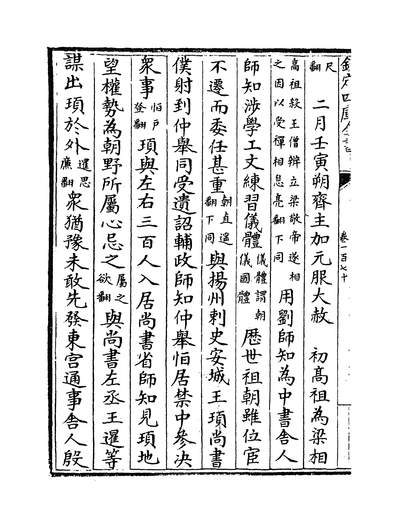 卷一百七十
尺翻 二月壬寅朔齊主加元服大赦 初髙祖為梁相
高祖殺王僧辨立梁敬帝遂相之因以受禪相息亮翻下同 用劉師知為中書舍人
師知涉學工文練習儀體儀體謂朝儀國體 歴世祖朝雖位宦
不遷而委任甚重朝直遥翻下同 與揚州刺史安城王頊尚書
僕射到仲舉同受遺詔輔政師知仲舉恒居禁中參決
衆事恒戶登翻 頊與左右三百人入居尚書省師知見頊地
望權勢為朝野所屬心忌之屬之欲翻 與尚書左丞王暹等
謀出頊於外暹思亷翻 衆猶豫未敢先發東宫通事舍人殷